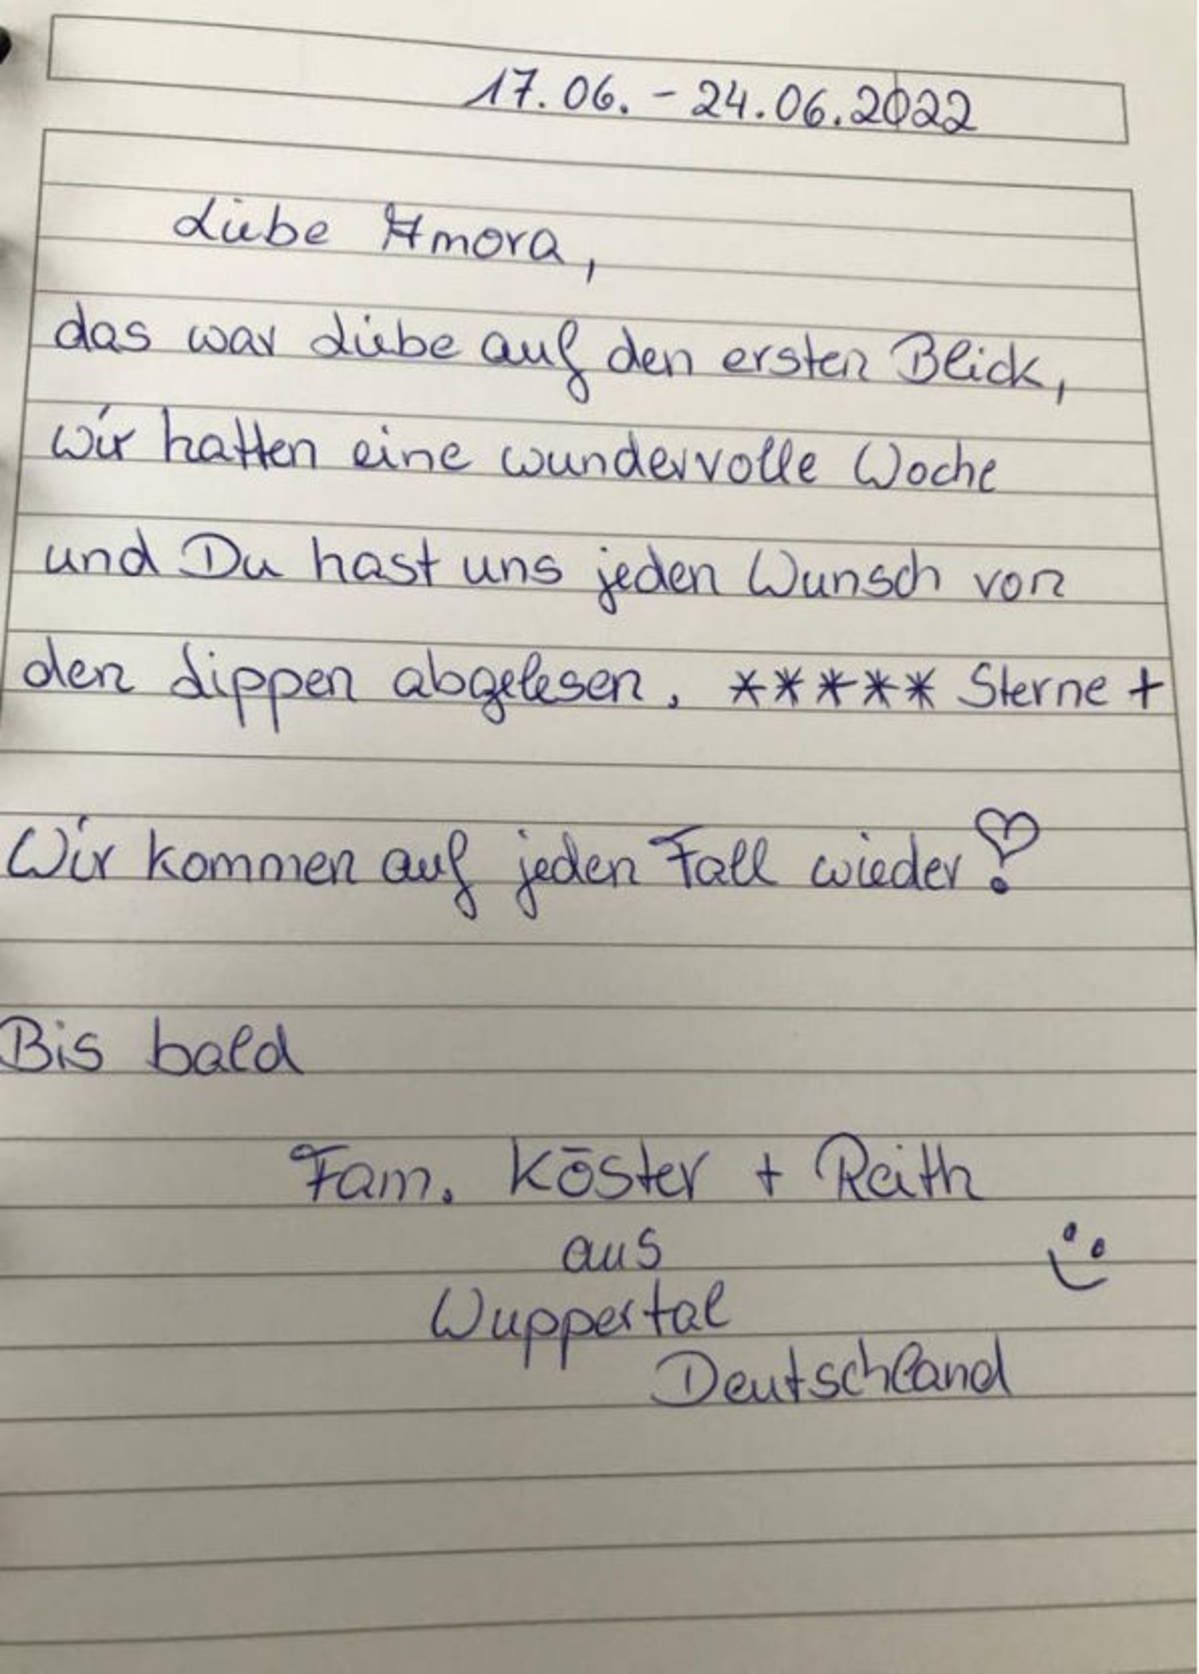 17.06. - 24.06.2022
Liebe Amora,
das war Liebe auf den ersten Blick,
wir hatten eine wundervolle Woche
und Du hast uns jeden Wunsch von
den Lippen abgelesen. ***** Sterne +
Wir kommen auf jeden Fall wieder!
Bis bald
Fam. Köster + Reith
aus
Wuppertal
Deutschland